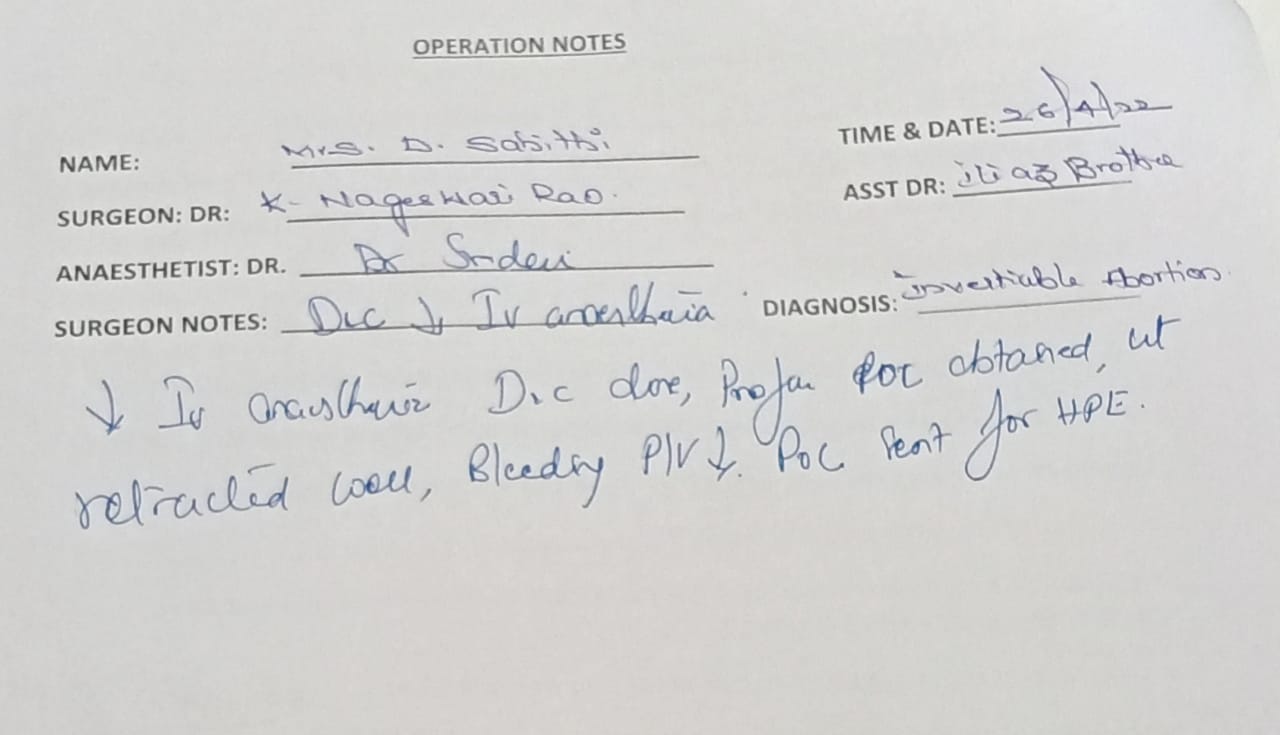 OPERATION NOTES
TIME & DATE: 26/4/22
NAME: Mrs. D. Sabitti
ASST DR: iliaz Brother
SURGEON: DR: K. Nageswari Rao.
ANAESTHETIST: DR. Dr Sridevi
DIAGNOSIS: Inveitiable Abortion.
SURGEON NOTES: D&C ↓ IV anaesthesia
↓ IV anaesthesia D&C done, POC obtained, ut
retracted well, Bleeding P/V ↓. POC sent for HPE.